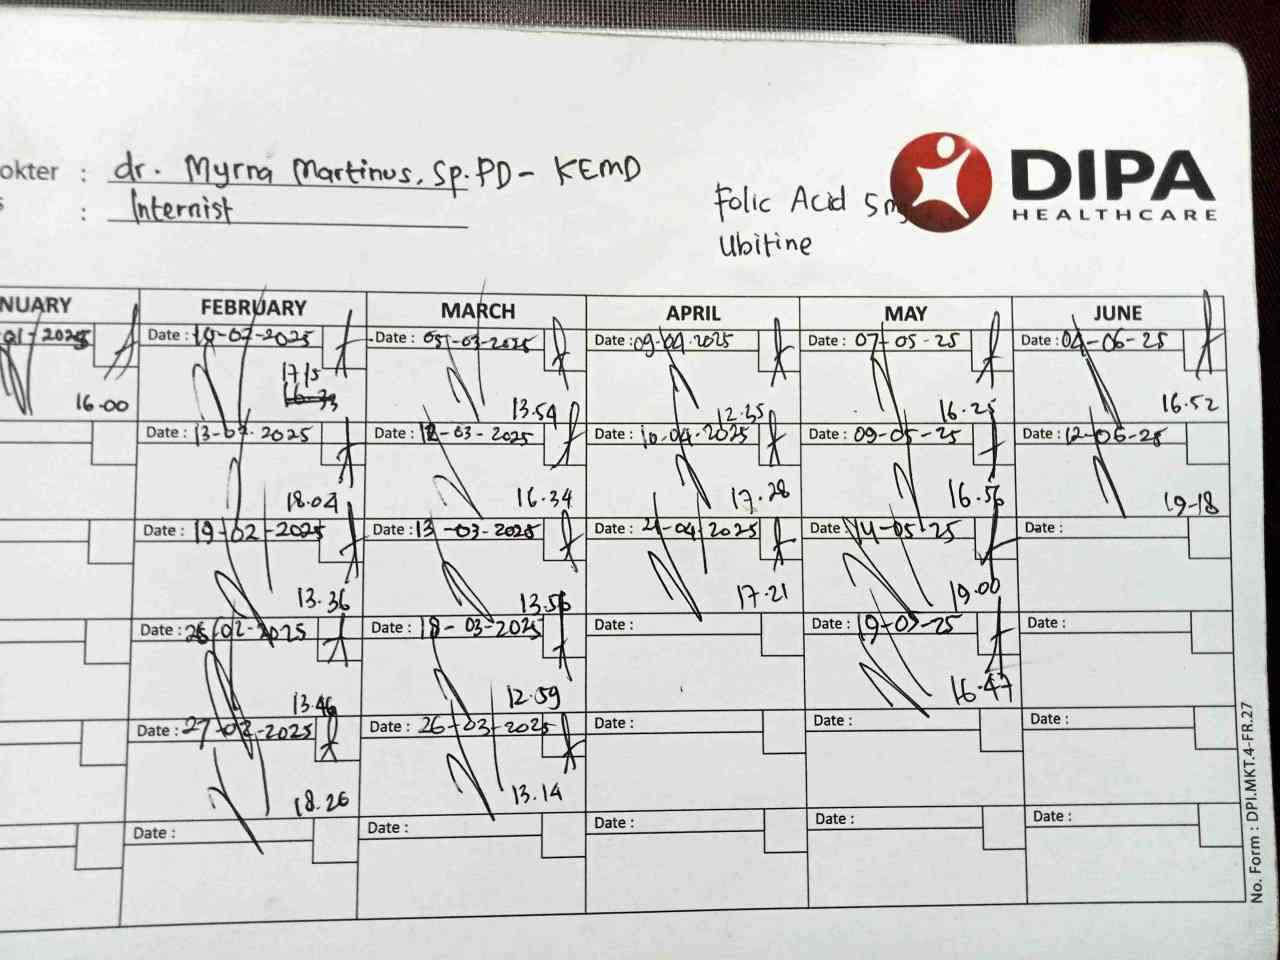 okter : dr. Myrna Martinus, Sp.PD - KEMD
s : Internist
Folic Acid 5 mg
Ubitine
DIPA
HEALTHCARE
NUARY FEBRUARY MARCH APRIL MAY JUNE
01-2025 Date : 10-02-2025 Date : 05-03-2025 Date : 09-04-2025 Date : 07-05-25 Date : 04-06-25
16.00 1715 13.54 12.35 16.25 16.52
Date : 13-02-2025 Date : 12-03-2025 Date : 10-04-2025 Date : 09-05-25 Date : 12-06-25
18.04 16.34 17.28 16.56 19-18
Date : 19-02-2025 Date : 13-03-2025 Date : 21-04-2025 Date : 14-05-25 Date :
13.36 13.56 17.21 19.00
Date : 26-02-2025 Date : 18-03-2025 Date : Date : 19-05-25 Date :
13.46 12.59 16.47
Date : 27-02-2025 Date : 26-03-2025 Date : Date : Date :
18.26 13.14
Date : Date : Date : Date : Date :
No. Form : DPI.MKT.4-FR.27